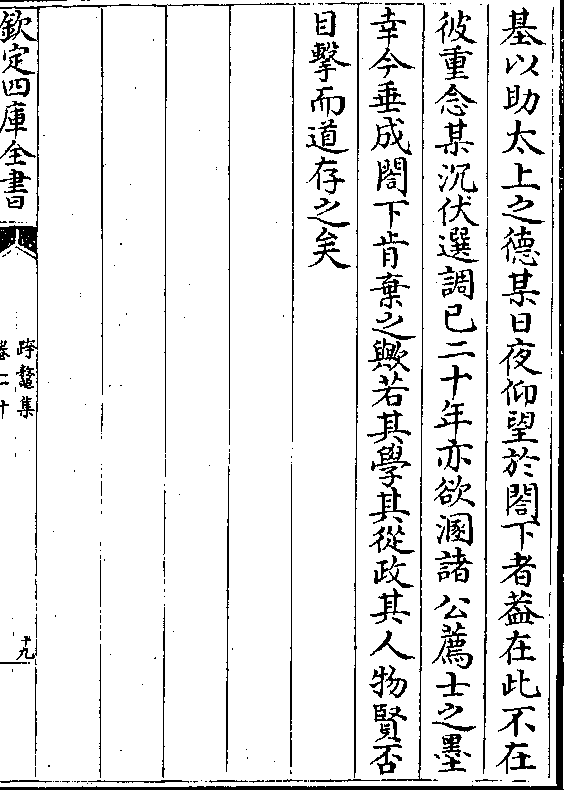 基以助太上之德某日夜仰望於閤下者葢在此不在
彼重念某沉伏選調已二十年亦欲溷諸公薦士之墨
幸今垂成閤下肯棄之歟若其學其從政其人物賢否
目擊而道存之矣
欽定四庫全書
跨鼇集
卷二十
十九